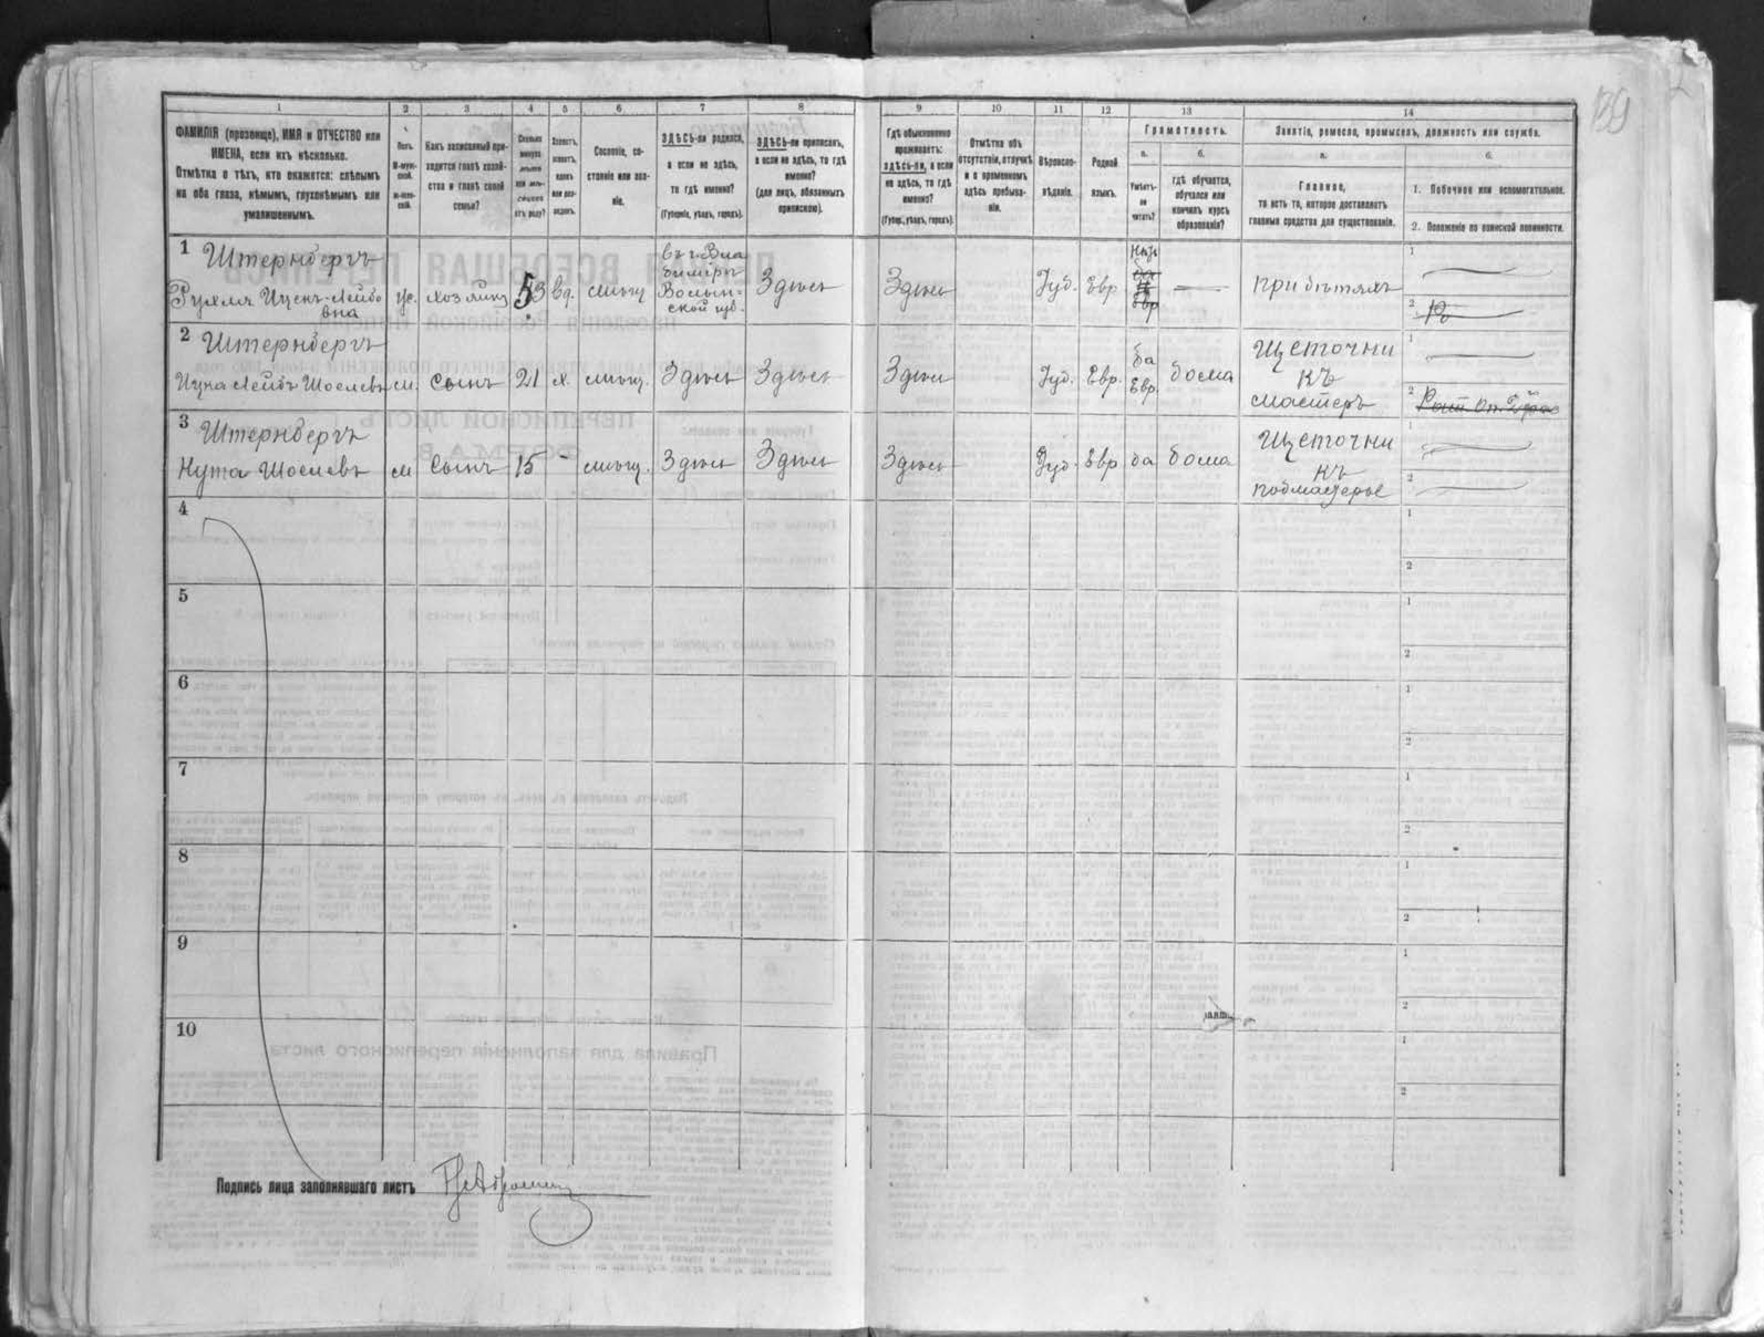 139
1 2 3 4 5 6 7 8 9 10 11 12 13 14
ФАМИЛІЯ (прозвище), ИМЯ и ОТЧЕСТВО или
ИМЕНА, если ихъ нѣсколько.
Отмѣтка о тѣхъ, кто окажется: слѣпымъ
на оба глаза, нѣмымъ, глухонѣмымъ или
умалишеннымъ.
Полъ.
М-муж-
ской.
Ж-жен-
скій.
Какъ записанный при-
ходится главѣ хозяй-
ства и главѣ своей
семьи?
Сколько
минуло
лѣтъ
или мѣ-
сяцевъ
отъ роду?
Холостъ,
женатъ,
вдовъ
или раз-
веденъ.
Сословіе, со-
стояніе или зва-
ніе.
ЗДѢСЬ-ли родился,
а если не здѣсь,
то гдѣ именно?
(Губернія, уѣздъ, городъ).
ЗДѢСЬ-ли приписанъ,
а если не здѣсь, то гдѣ
именно?
(для лицъ, обязанныхъ
припискою).
Гдѣ обыкновенно
проживаетъ:
ЗДѢСЬ-ЛИ, а если
не здѣсь, то гдѣ
именно?
(Губер., уѣздъ, городъ).
Отмѣтка объ
отсутствіи, отлучкѣ
и о временномъ
здѣсь пребыва-
ніи.
Вѣроиспо-
вѣданіе.
Родной
языкъ.
Грамотность.
а.
Умѣетъ-
ли
читать?
б.
гдѣ обучается,
обучался или
кончилъ курсъ
образованія?
Занятіе, ремесло, промыселъ, должность или служба.
а.
Главное,
то есть то, которое доставляетъ
главныя средства для существованія.
б.
1. Побочное или вспомогательное.
2. Положеніе по воинской повинности.
1 Штернбергъ
Рухля Ицекъ-Лейбо
вна
ж. хозяйка 53 вд. мѣщ
въ г. Вла
димірѣ
Волын-
ской губ.
Здѣсь Здѣсь Іуд. Евр
Евр
при дѣтяхъ
1
2
2 Штернбергъ
Ицка Лейбъ Шоелевъ м. сынъ 21 х. мѣщ. Здѣсь Здѣсь Здѣсь Іуд. Евр.
да
Евр.
дома
Щеточни
къ
мастеръ
1
2
3 Штернбергъ
Нута Шоелевъ м сынъ 15 - мѣщ. Здѣсь Здѣсь Здѣсь Іуд. Евр да дома
Щеточни
къ
подмастерье
1
2
4 1
2
5 1
2
6 1
2
7 1
2
8 1
2
9 1
2
10 1
2
Подпись лица заполнявшаго листъ